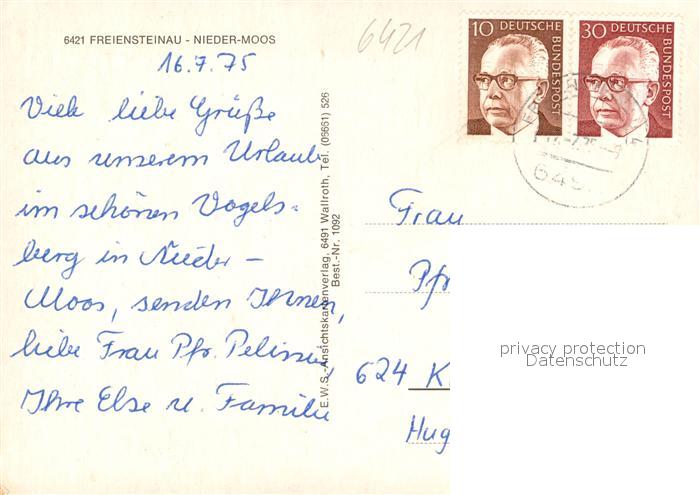 6421 FREIENSTEINAU - NIEDER-MOOS
16.7.75
Viele liebe Grüße
aus unserem Urlaub
im schönen Vogels-
berg in Nieder-
Moos, senden Ihnen,
liebe Frau Pfr.
Ihre Else u. Familie
E.W.S.-Ansichtskartenverlag, 6491 Wallroth, Tel. (06661) 526
Best.-Nr. 1092
6421
10 DEUTSCHE BUNDESPOST
30 DEUTSCHE BUNDESPOST
Frau
Pfr
624 K
Hug
privacy protection
Datenschutz